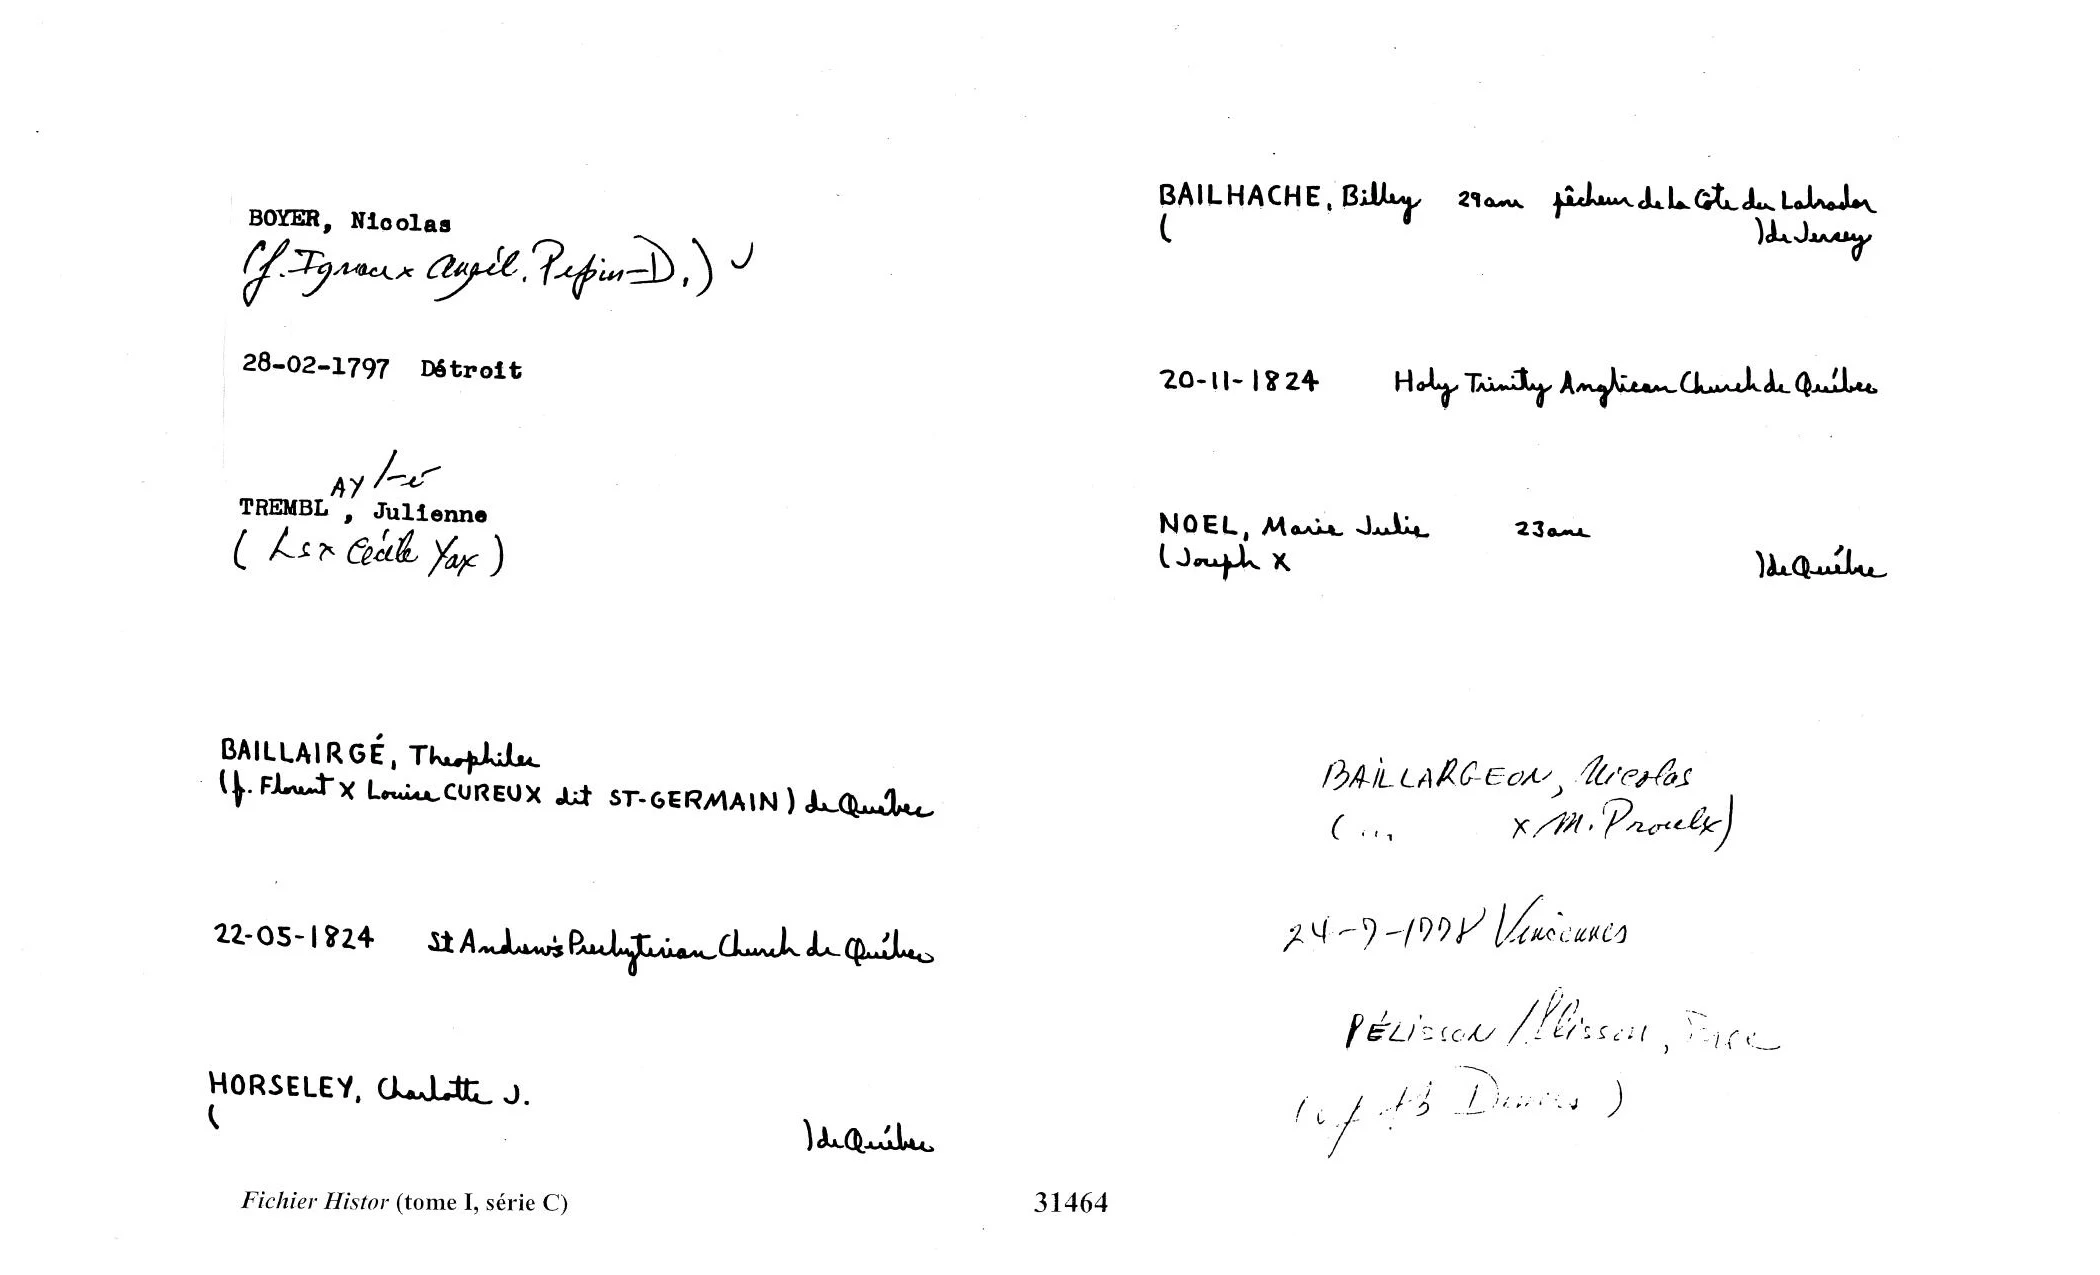 BOYER, Nicolas
(f. Ignace x Angél. Pepin-D.)
28-02-1797 Détroit
AY /-é
TREMBL , Julienne
(Ls x Cécile Yax)
BAILLAIRGÉ, Theophile
(f. Florent X Louise CUREUX dit ST-GERMAIN) de Québec
22-05-1824 St Andrew's Presbyterian Church de Québec
HORSELEY, Charlotte J.
( ) de Québec
BAILHACHE, Billey 29 ans pêcheur de la Côte du Labrador
( ) de Jersey
20-11-1824 Holy Trinity Anglican Church de Québec
NOEL, Marie Julie 23 ans
(Joseph X ) de Québec
BAILLARGEON, Nicolas
(... x M. Proulx)
Vincennes
PÉLISSON /
Fichier Histor (tome I, série C) 31464